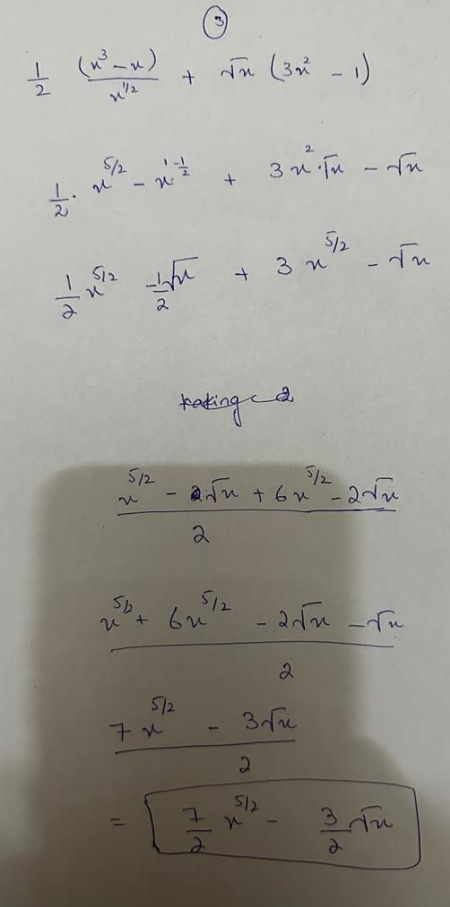 ③
1/2 (x³ - x)/x^(1/2) + √x (3x² - 1)
1/2 · x^(5/2) - x^(1-1/2) + 3x²·√x - √x
1/2 x^(5/2) - 1/2 √x + 3x^(5/2) - √x
(x^(5/2) - √x + 6x^(5/2) - 2√x)/2
(x^(5/2) + 6x^(5/2) - 2√x - √x)/2
(7x^(5/2) - 3√x)/2
= 7/2 x^(5/2) - 3/2 √x